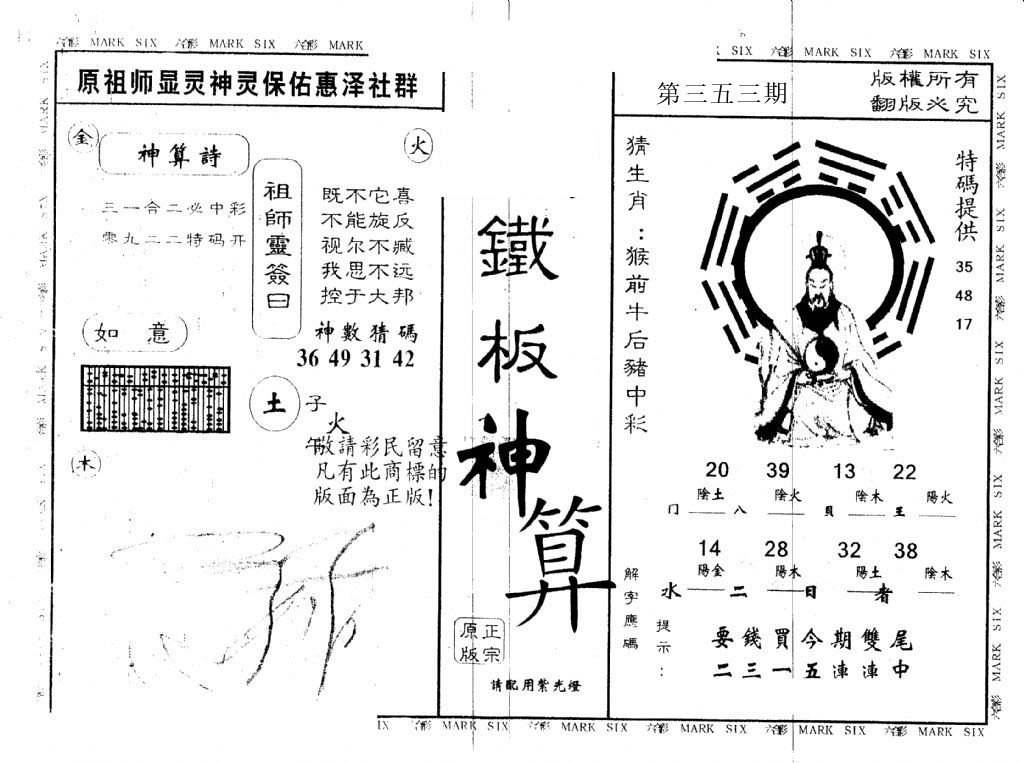 六合彩 MARK SIX 六合彩 MARK SIX 六合彩 MARK
SIX 六合彩 MARK SIX 六合彩 MARK SIX
原祖师显灵神灵保佑惠泽社群
金
神算詩
火
三一合二必中彩
零九二二特码开
祖師靈簽曰
既不它喜
不能旋反
视尔不臧
我思不远
控于大邦
神數猜碼
36 49 31 42
如 意
土
子
火
午
木
敬請彩民留意
凡有此商標的
版面為正版!
鐵板神算
正宗
原版
請配用紫光燈
第三五三期
版權所有
翻版必究
猜生肖:猴前牛后豬中彩
特碼提供
35
48
17
20 39 13 22
陰土 陰火 陰木 陽火
门 八 貝 王
14 28 32 38
陽金 陽木 陽土 陰木
水 二 日 者
解字應碼
提示:
要錢買今期雙尾
二三一五連連中
IX 六合彩 MARK SIX 六合彩 MARK SIX 六合彩 MARK SIX 六合彩 MARK SIX 六合彩 MARK SIX